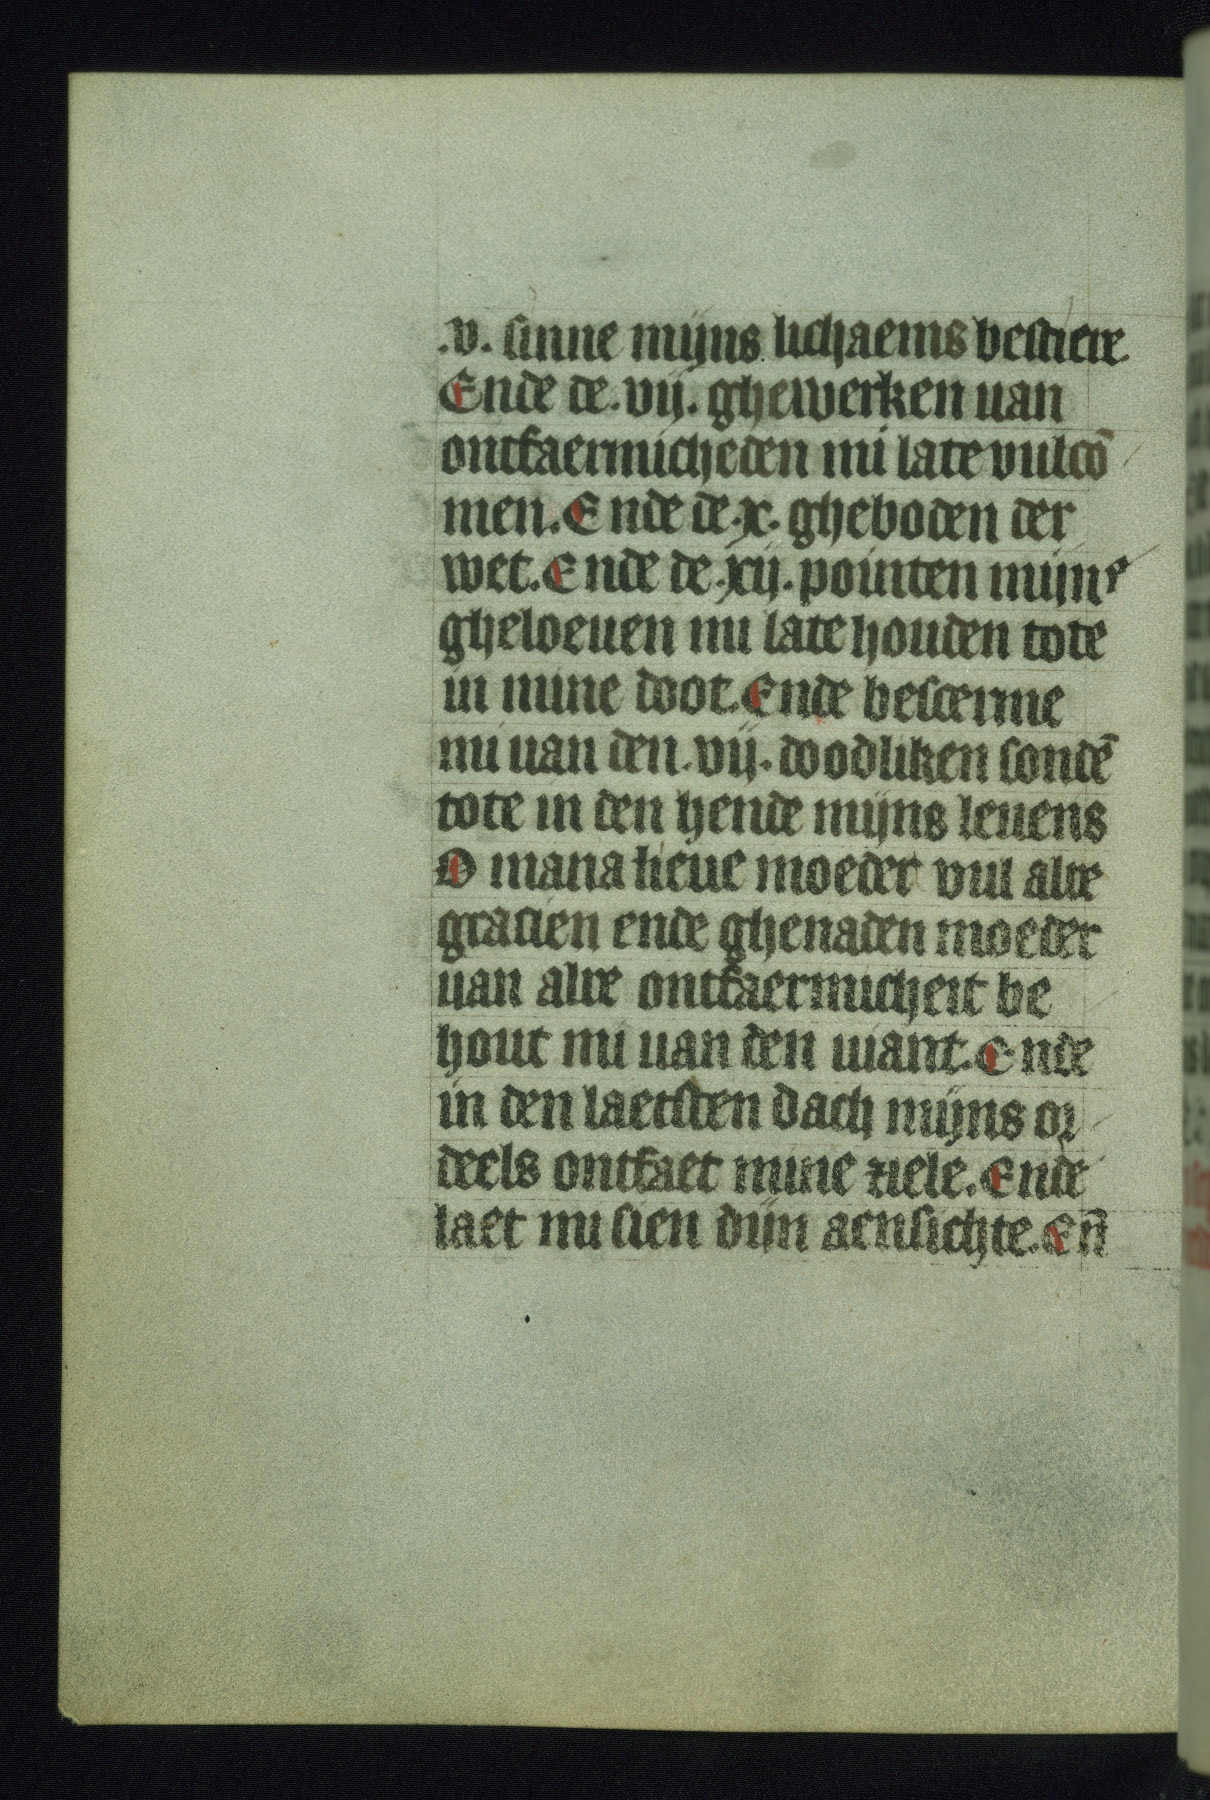 .v. sinne mijns lichaems bestiere
Ende de .vij. ghewerken uan
ontfaermicheden mi late vulcō
men. Ende de .x. gheboden der
wet. Ende de .xij. pointen mijns
gheloeuen mi late houden tote
in mine doot. Ende bescerme
mi uan den .vij. doodliken sondē
tote in den hende mijns leuens
O maria lieue moeder vul alre
gracien ende ghenaden moeder
uan alre ontfaermicheit be
hout mi uan den uiant. Ende
in den laetsten dach mijns or
deels ontfaet mine ziele. Ende
laet mi sien dijn aensichte. Eñ